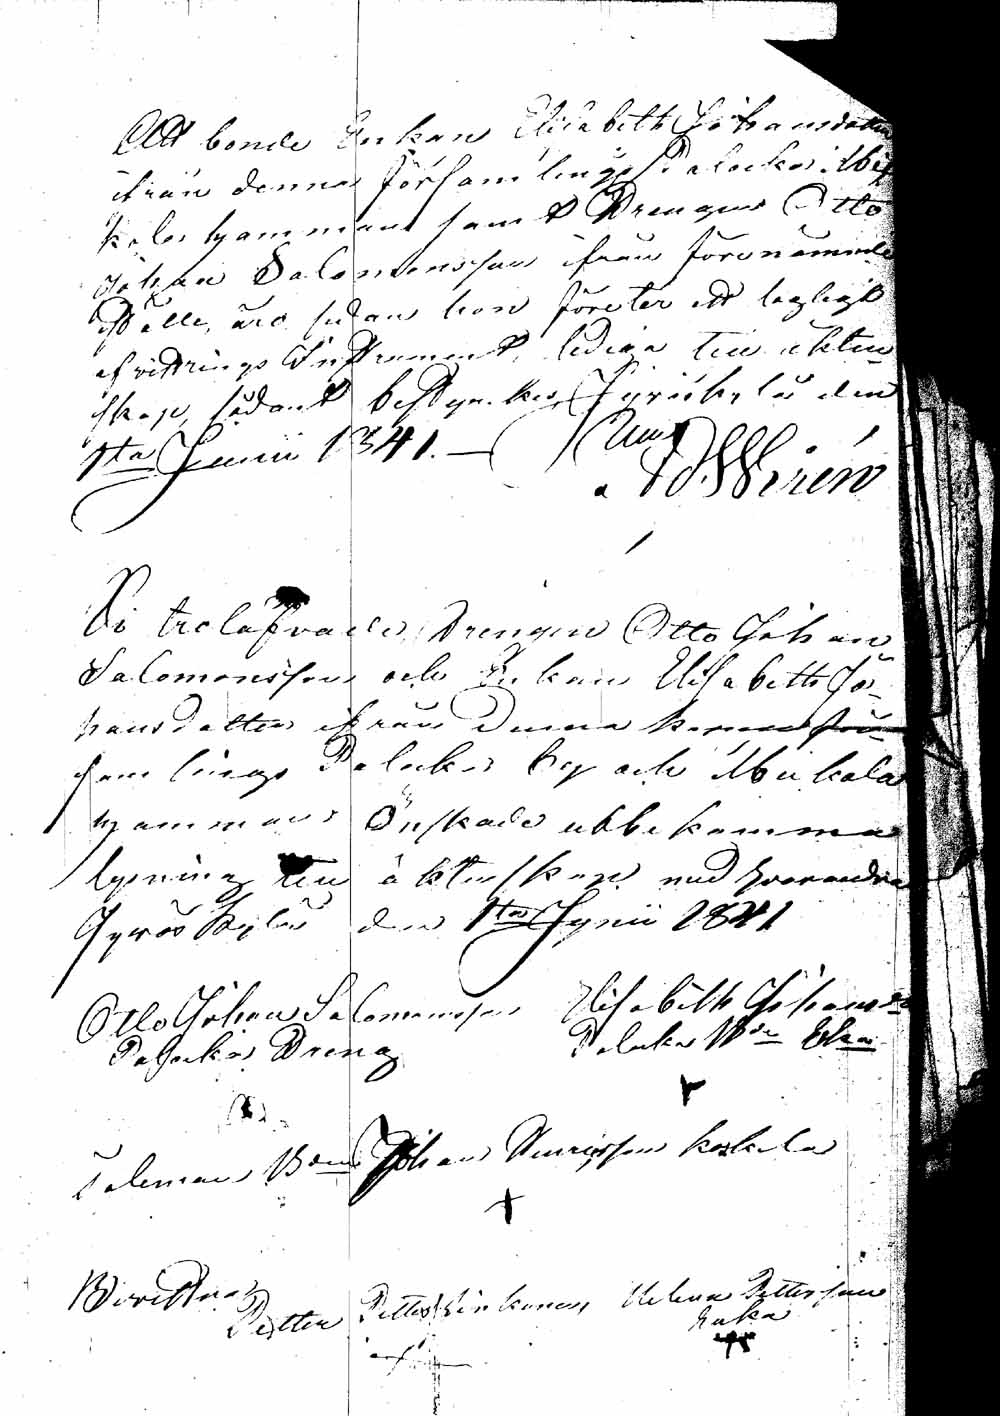 Att bonde Enkan Elisabeth Johansdotter
ifrån denna församlings Palocka Mi
kola hemman samt Drengen Otto
Johan Salomonsson ifrån förenämnde
ställe, äro sedan hon företer ett lagligt
afvittrings Instrument, lediga till äkten
skap, sådant bestyrkes, Jyväskylä den
1sta Junii 1841. —
Wirén
Vi trolåfvade Drengen Otto Johan
Salomonsson och Enkan Elisabeth Jo-
hansdotter ifrån Denna
samlings Palocka by och Mikola
hemman Önskade utbekomma
lysning till äktenskap med hvarandra
Jyväskylä den 1sta Junii 1841
Otto Johan Salomonsson Elisabeth Johansdr
Palocka Dreng Palocka Bde Eka
Taleman Bonde Johan Henricsson Koskela
Petter Petter Helena Pettersson
Enka